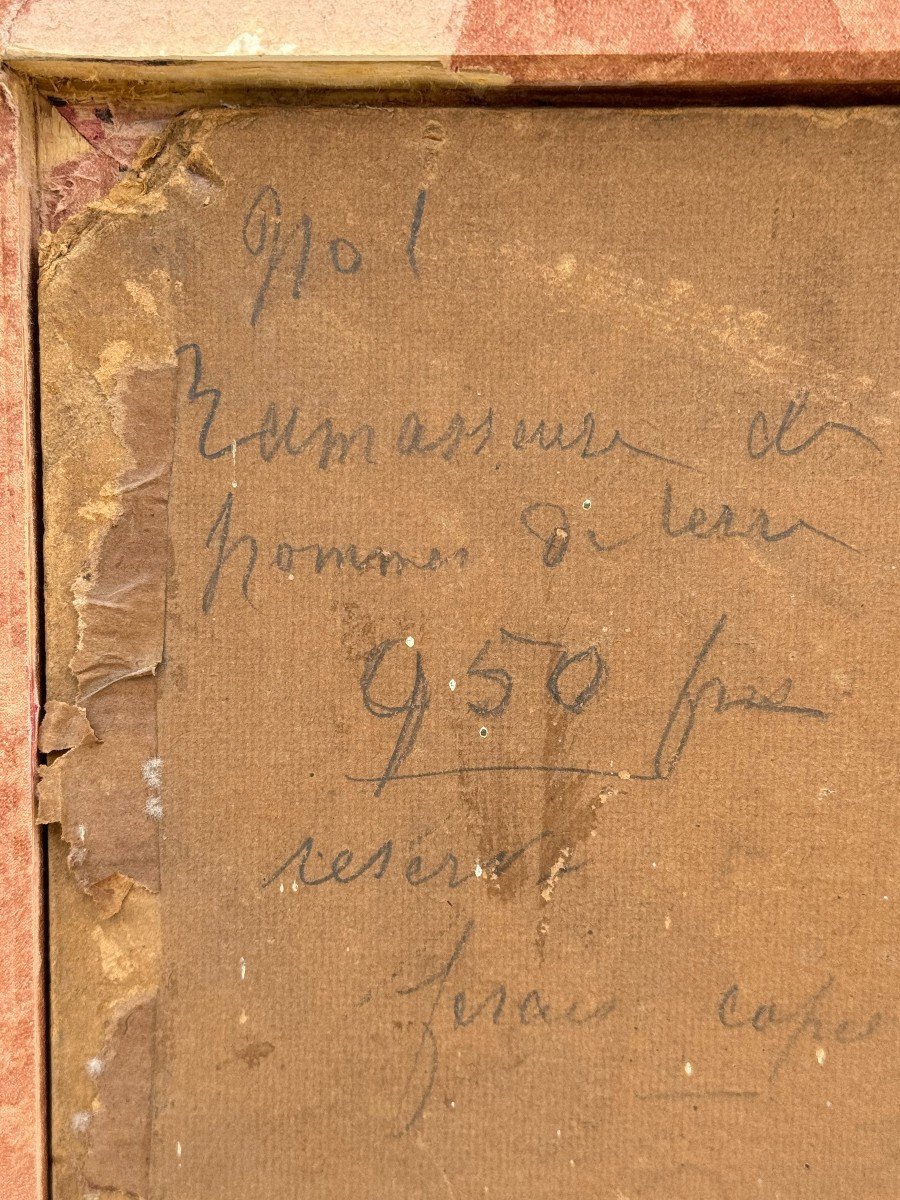 No 1
Ramasseuse de
pommes de terre
950 frs
reserve
ferais copie